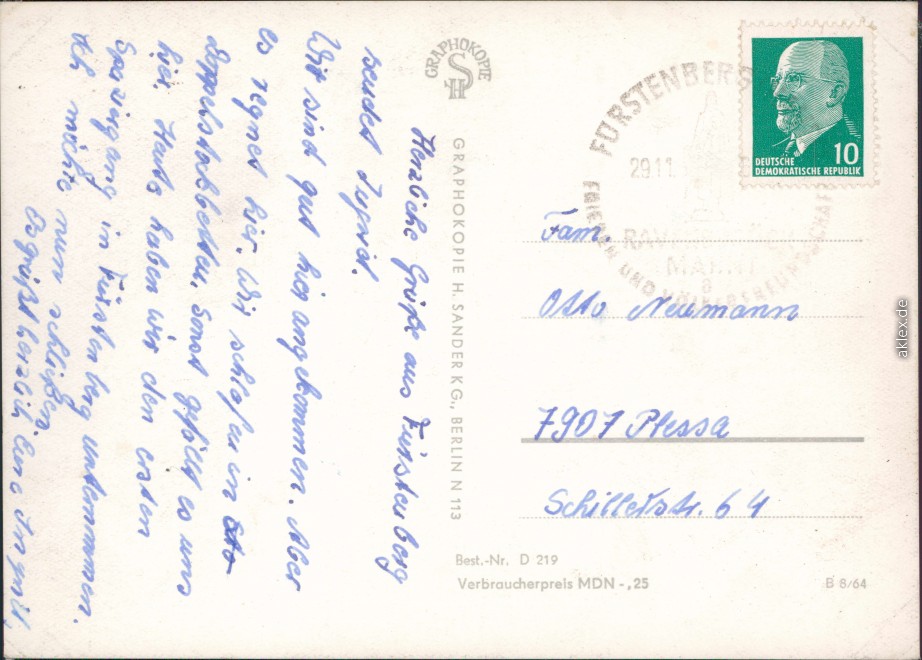 Herzliche Grüße aus Fürstenberg
sendet Ingrid.
Wir sind gut hier angekommen. Aber
es regnet hier. Wir schlafen in
Doppelstockbetten, sonst gefällt es uns
hier. Heute haben wir den ersten
Spaziergang in Fürstenberg unternommen.
Ich möchte nun schließen.
Es grüßt herzlich Eure Ingrid.
GRAPHOKOPIE
SH
GRAPHOKOPIE H. SANDER KG., BERLIN N 113
FÜRSTENBERG
29.11.
RAVENSBRÜCK
MAHNT
a
FRIEDEN UND VÖLKERFREUNDSCHAFT
10
DEUTSCHE
DEMOKRATISCHE REPUBLIK
Fam.
Otto Neumann
7901 Plessa
Schillerstr. 64
Best.-Nr. D 219
Verbraucherpreis MDN -,25
B 8/64
aklex.de